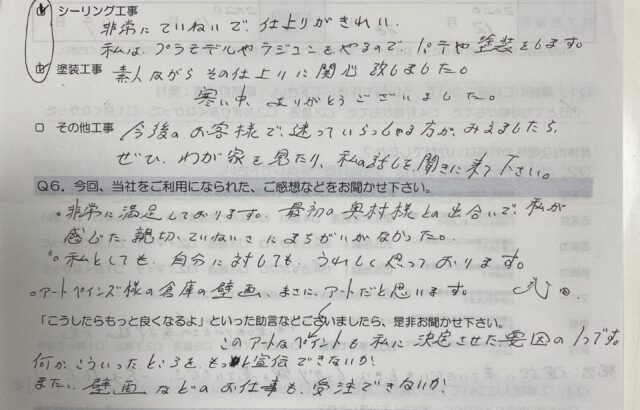 シーリング工事
非常にていねいで、仕上りがきれい、
私は、プラモデルやラジコンをやるので、パテや塗装をします。
塗装工事 素人ながら その仕上りに関心致しました。
寒い中、ありがとうございました。
その他工事 今後のお客様で、迷っていらっしゃる方が、みえましたら、
ぜひ、わが家を見たり、私の話しを、聞きに来て下さい。
Q6．今回、当社をご利用になられた、ご感想などをお聞かせ下さい。
・非常に満足しております。最初の奥村様との出合いで、私が
感じた、親切、ていねいさにまちがいがなかった。
。私としても、自分に対しても、うれしく思っております。
。アートペインズ様の倉庫の壁画、まさに、アートだと思います。
「こうしたらもっと良くなるよ」といった助言などございましたら、是非お聞かせ下さい。
このアートなペイントも 私に決定させた要因の1つです。
何か、こういったところを、もっと宣伝できないか!
また、壁画などのお仕事も、受注できないか!